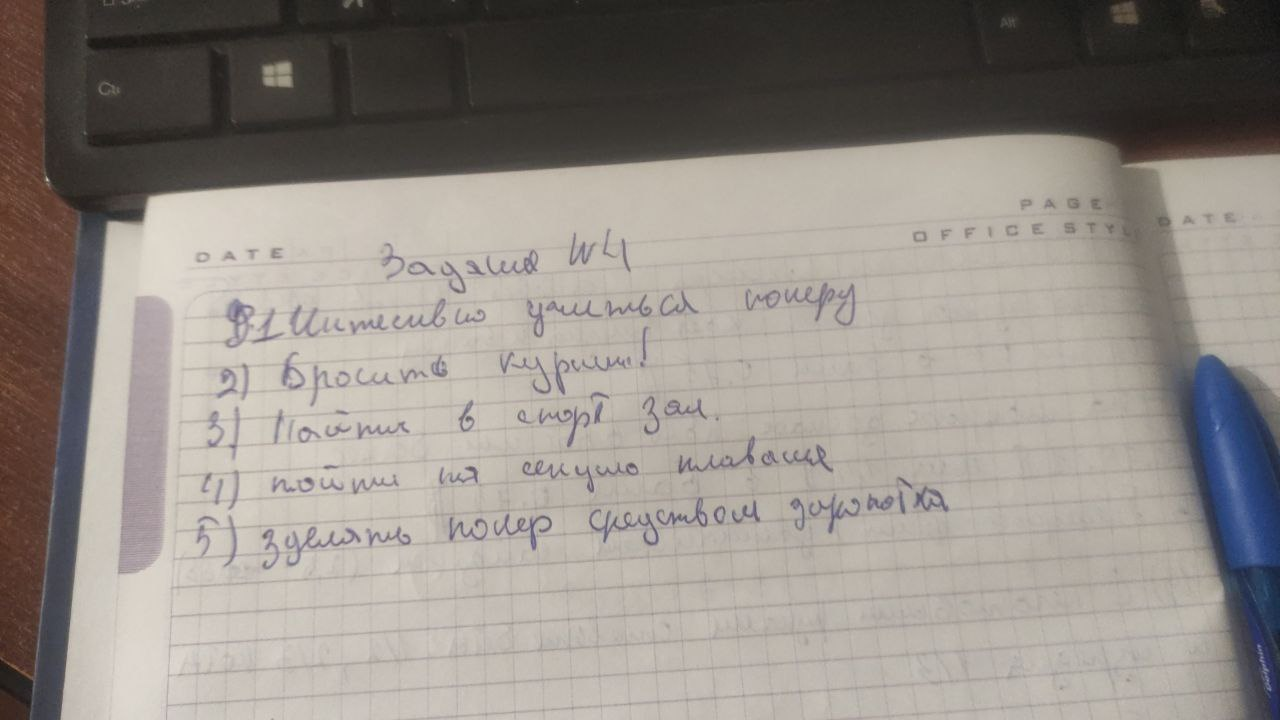 Alt
DATE
PAGE
OFFICE STYL
DATE
Задания №4
1 Интесивно учиться покеру
2) Бросить курить!
3) Пойти в спорт зал.
4) пойти на секцию плаванье
5) зделать покер средством заработка
Dolphin